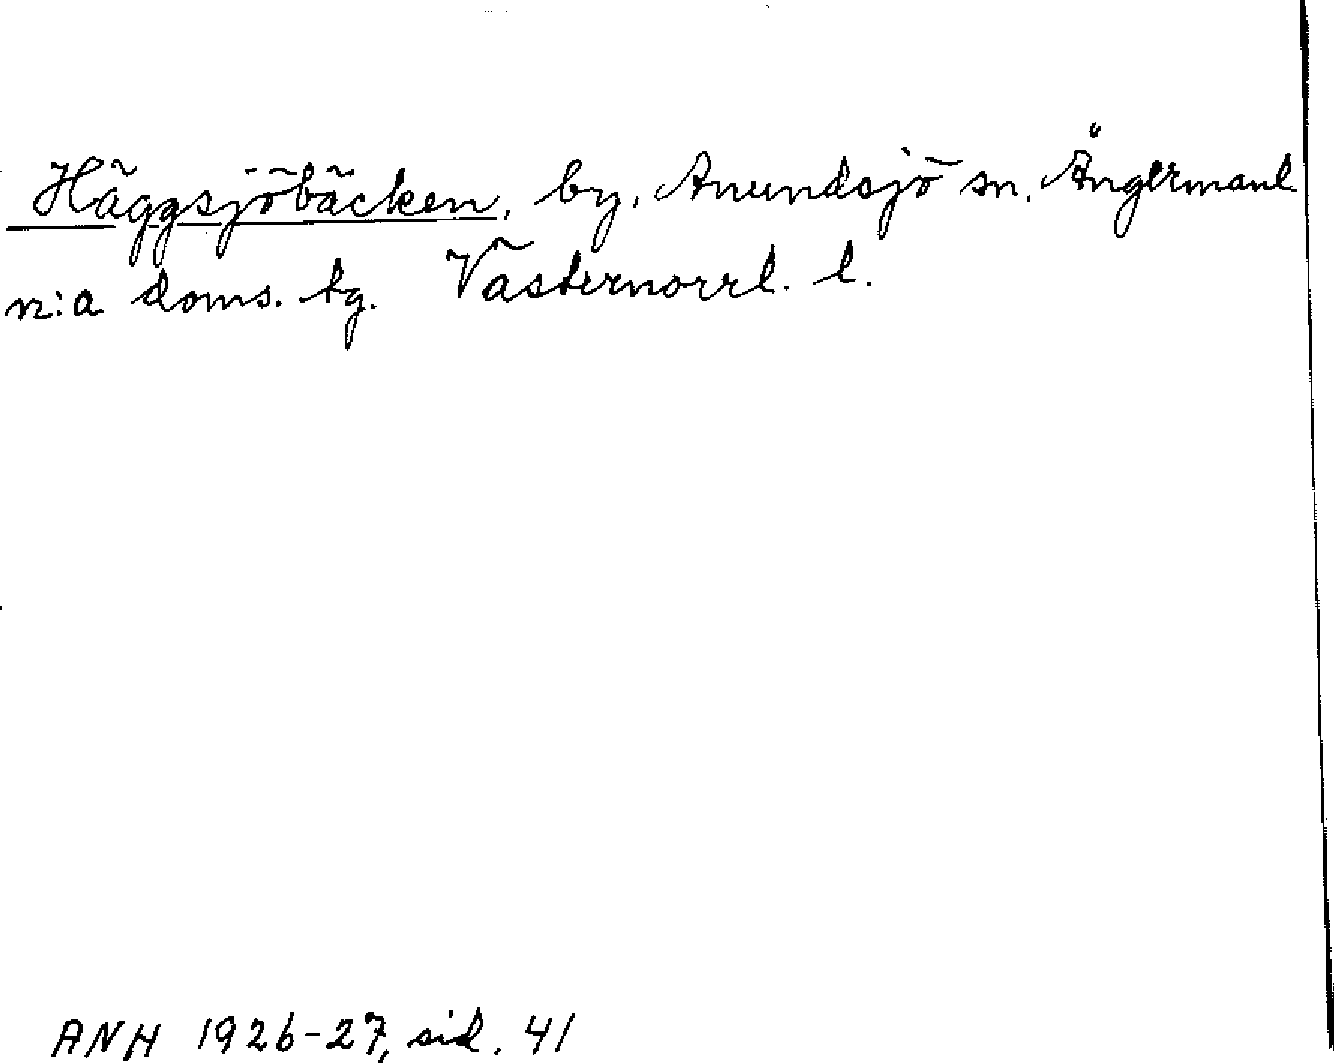 Häggsjöbäcken, by, Anundsjö sn, Ångermanl
n:a doms. tg. Västernorrl. l.
ANH 1926-27, sid. 41